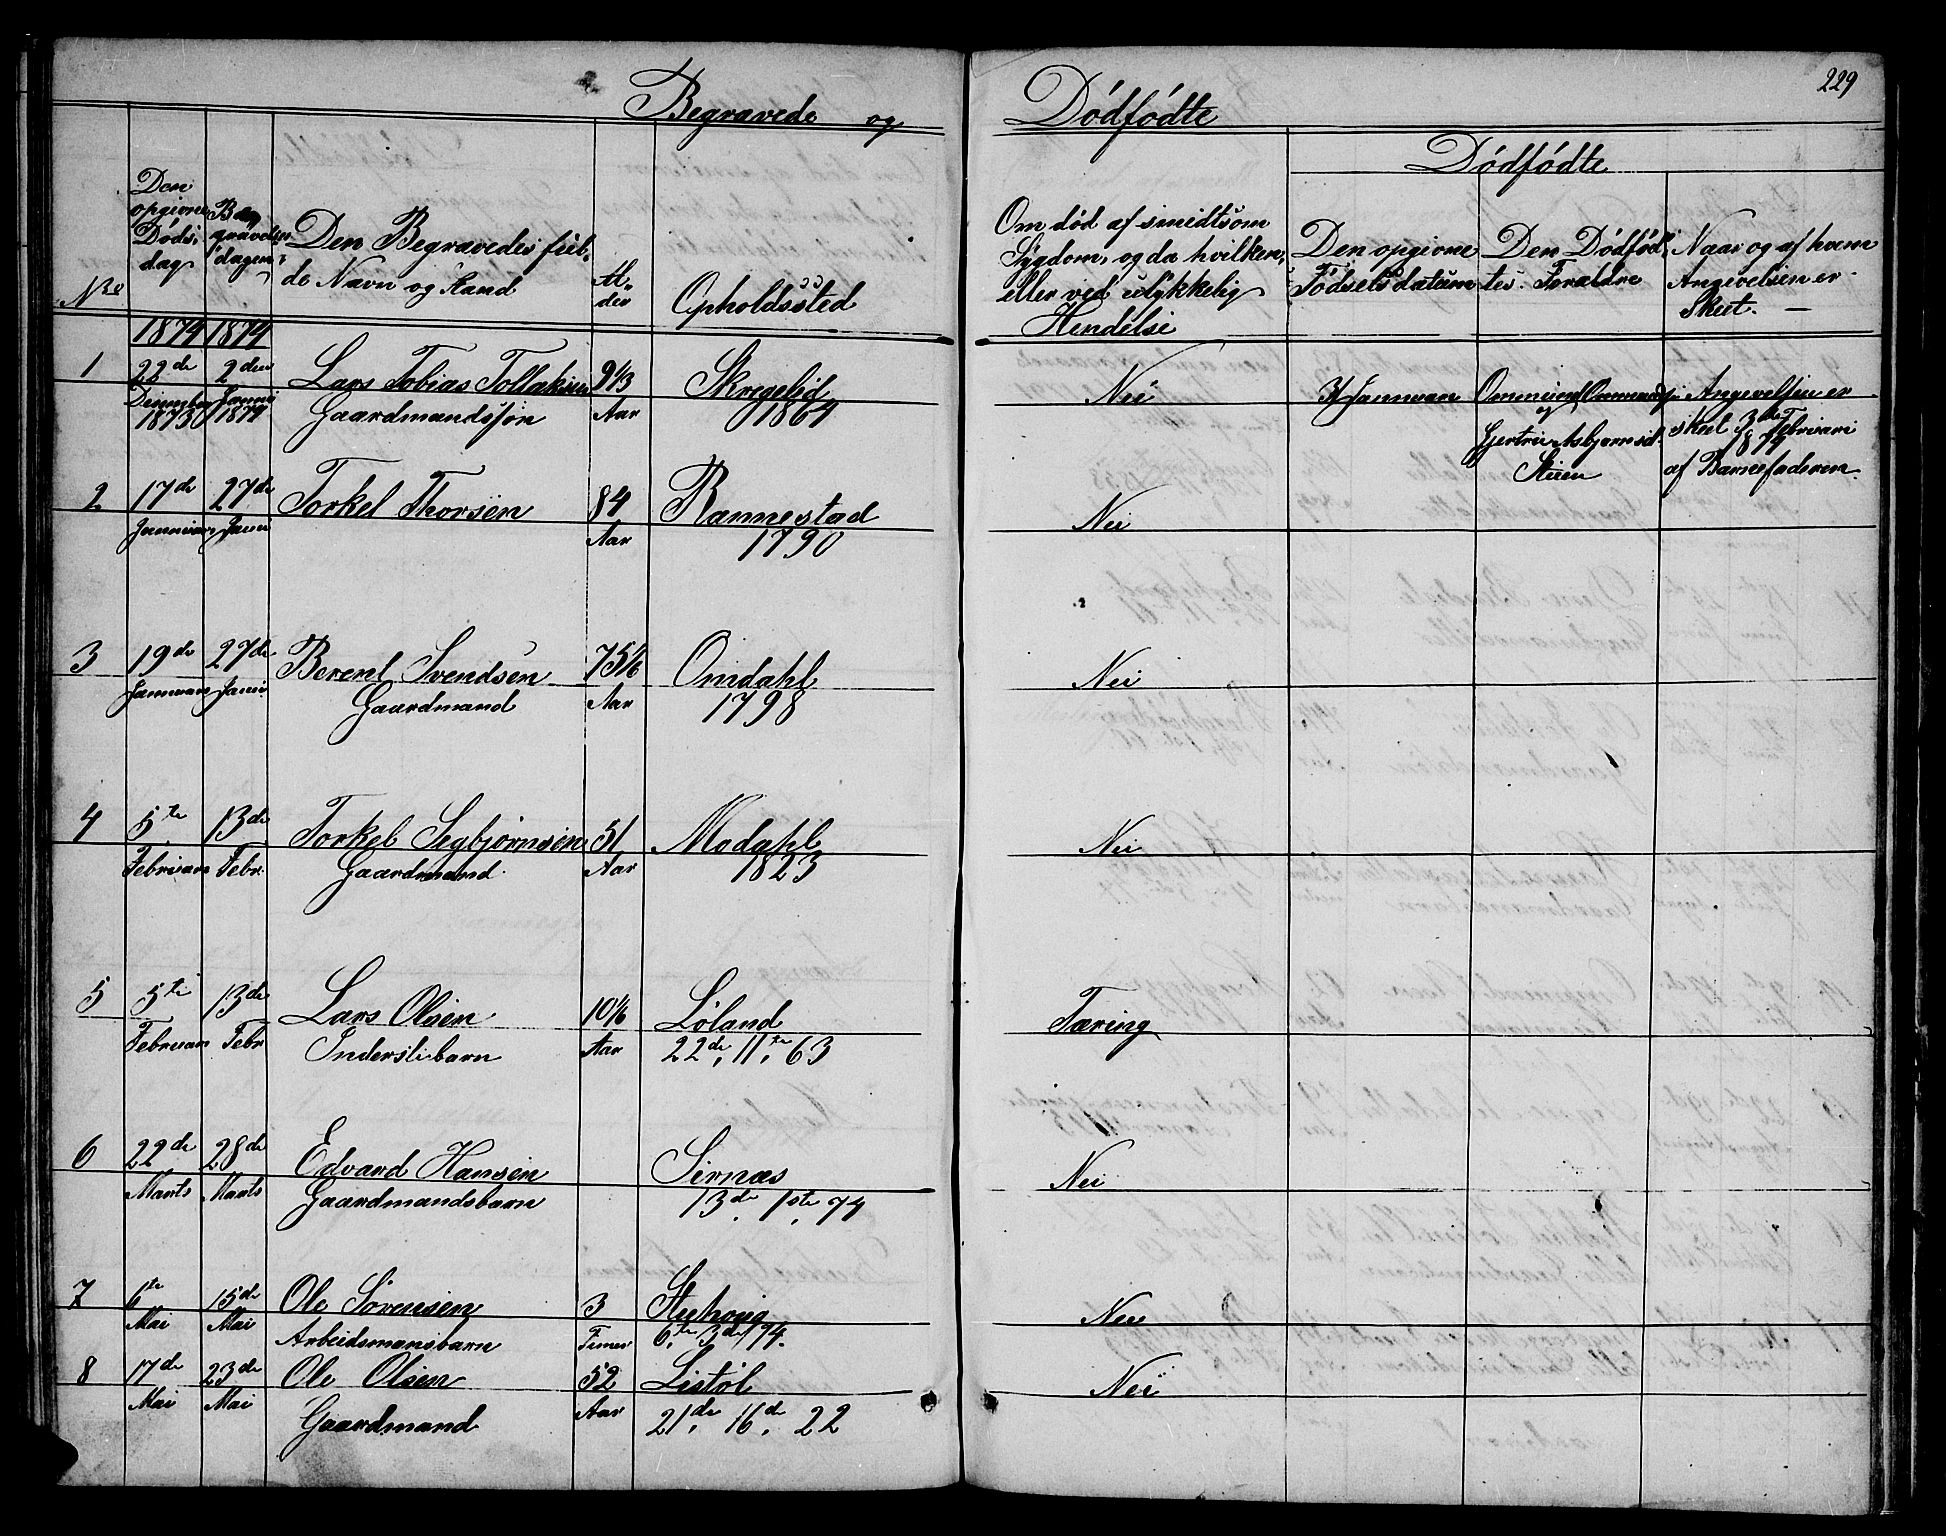 229
Begravede og Dødfødte
Dødfødte
No
Den opgivne Døds dag
Begravelses dagen
Den Begravedes ful-
de Navn og Stand
Al-
der
Opholdssted
Om død af smidtsom
Sygdom, og da hvilken,
eller ved ulykkelig
Hendelse
Den opgivne
Fødsels datum
Den Dødfød
tes Forældre
Naar og af hvem
Angevelsen er
Skeet. —
1874 1874
1 22de 2den Lars Tobias Tollaksen 9 1/3 Skregelid Nei
December Januar Gaardmandssøn Aar 1864
1873 1874
Januar
og
Gjertru Asbjørnsd.
Stuen
Angevelsen er
skeet 3de Februari
1874
af Barnefaderen.
2 17de 27de Torkel Thorsen 84 Rannestad Nei
Januar Janu Aar 1790
3 19de 27de Berent Svendsen 75 1/6 Omdahl Nei
Januar Janu Gaardmand Aar 1798
4 5te 13de Torkel Segbjørnsen 51 Modahl Nei
Februar Febr. Gaardmand Aar 1823
5 5te 13de Lars Olsen 10 1/6 Løland Tæring
Februar Febr Inderstebarn Aar 22de, 11te, 63
6 22de 28de Edvard Hansen Sirnæs Nei
Marts Marts Gaardmandsbarn 13de, 1ste, 74
7 6te 15de Ole Sørensen 3 Nei
Mai Mai Arbeidsmansbarn Timer 6te, 3de 74.
8 17de 23de Ole Olsen 52 Listøl Nei
Mai Mai Gaardmand Aar 21de, 16de, 22